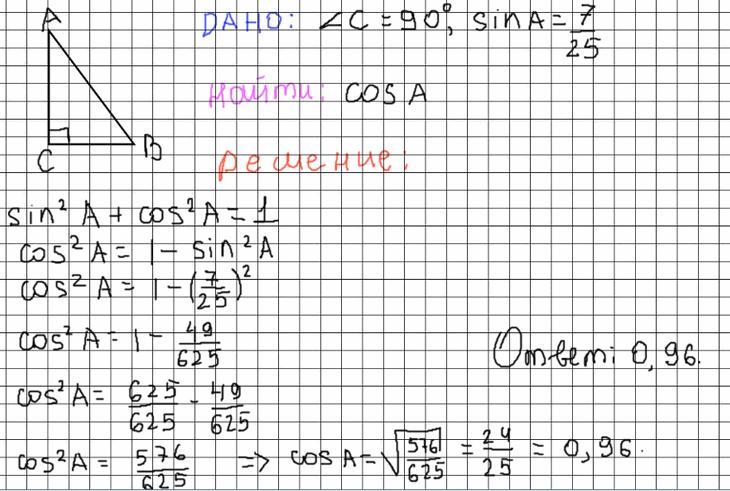 A
C
B
ДАНО: ∠C = 90°, sin A = 7/25
найти: cos A
решение:
sin² A + cos² A = 1
cos² A = 1 - sin² A
cos² A = 1 - (7/25)²
cos² A = 1 - 49/625
cos² A = 625/625 - 49/625
cos² A = 576/625 => cos A = √(576/625) = 24/25 = 0,96.
Ответ: 0,96.